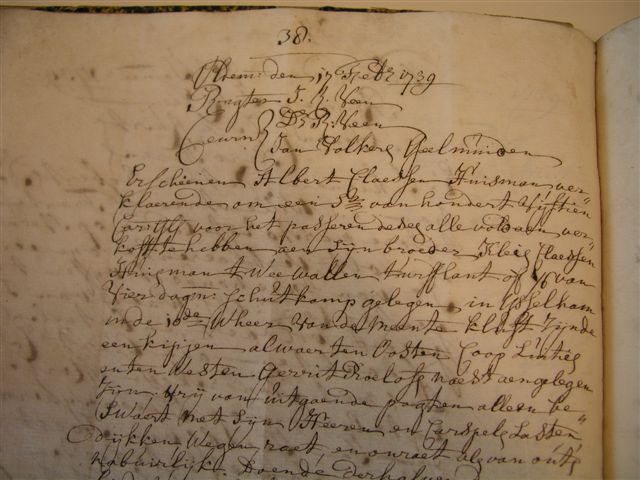 38.
Actum den 17 Febr 1739
Rigter J. R. Veen
Ceurn Ds R: Veen
Jan Volkers Geelmuiden
Erscheenen Albert Claessen Huisman ver=
klaerende om een Sa van hondert Vijftien
Car gls voor het passeren deses alle voldaen ver=
koft te hebben aen sijn broeder Kleis Claessen
Huisman twee wallen turflant of 1/6 van
vier dagm: Schutkamp gelegen in IJsselham
in de 10de Wheer van de Meente kluft zijnde
een kipjen alwaer ten Oosten Coop Linties
en ten Westen Gerrit Roelofs naest aengelegen
zijn, vrij van uitgaende pagten alleen be=
swaert met sijn Heeren en Carspels Lasten,
Dijkken Wegen, raet, en onraet als van outs
nabuirlijk. Doende derhalven